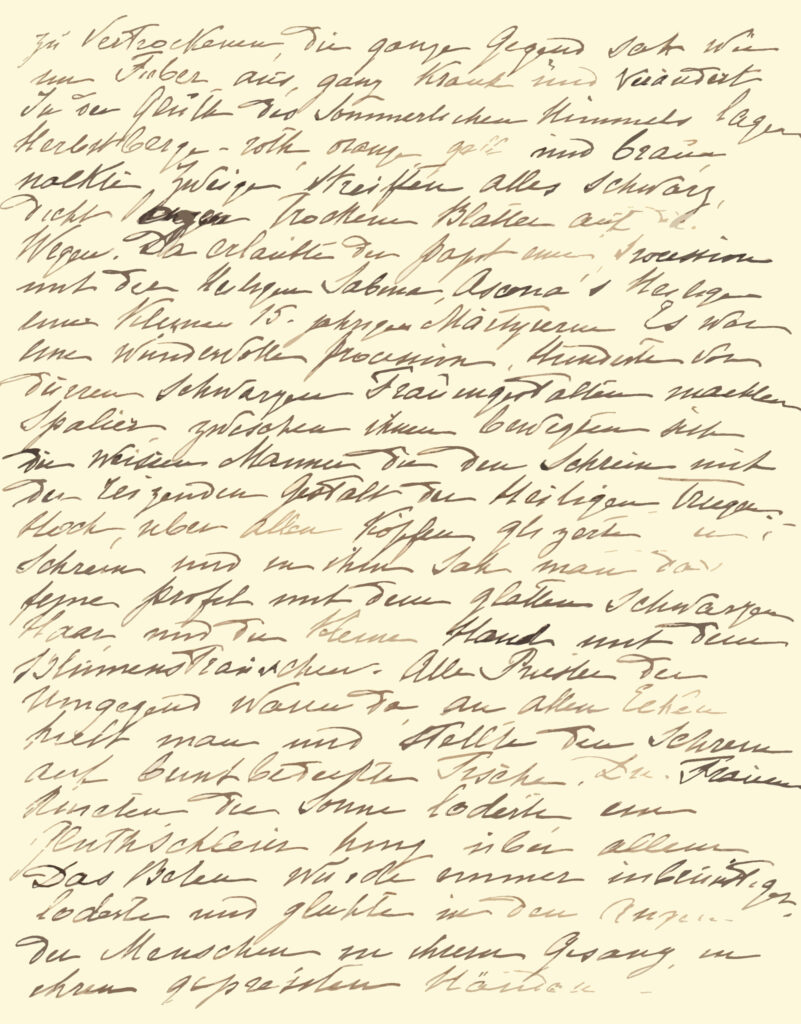 zu Vertrocknen, die ganze Gegend sah wie
im Fieber aus, ganz Krank und Verändert
In der Gluth des Sommerlichen Himmels lagen
Herbstberge - roth, orange, gelb und braun
nackte Zweige, Streiften alles Schwarz,
dicht lagen Trockene Blätter auf den
Wegen. Da erlaubte der Papst eine Procession
mit der Heiligen Sabina, Ascona's Heilige
einer Kleinen 15. jährigen Märtyrerin Es war
eine Wundervolle Procession, Hunderte von
dürren Schwarzen Frauengestalten machten
Spalier zwischen ihnen bewegten sich
die Weissen Männer die den Schrein mit
der reizenden Gestalt der Heiligen Trugen
Hoch, über allen Köpfen glizerte
Schrein und in ihm Sah man das
feine Profil mit dem glatten Schwarzen
Haar, und die Kleine Hand mit dem
Blumensträusschen. Alle Priester der
Umgegend waren da, an allen Ecken
hielt man und stellte den Schrein
auf buntbedeckte Tische. Die Frauen
Knieten die Sonne loderte ein
Gluthschleier hing über allem
Das Beten wurde immer inbrünstiger
loderte und glühte in den Augen
der Menschen in ihrem Gesang, in
ihren gepressten Händen -